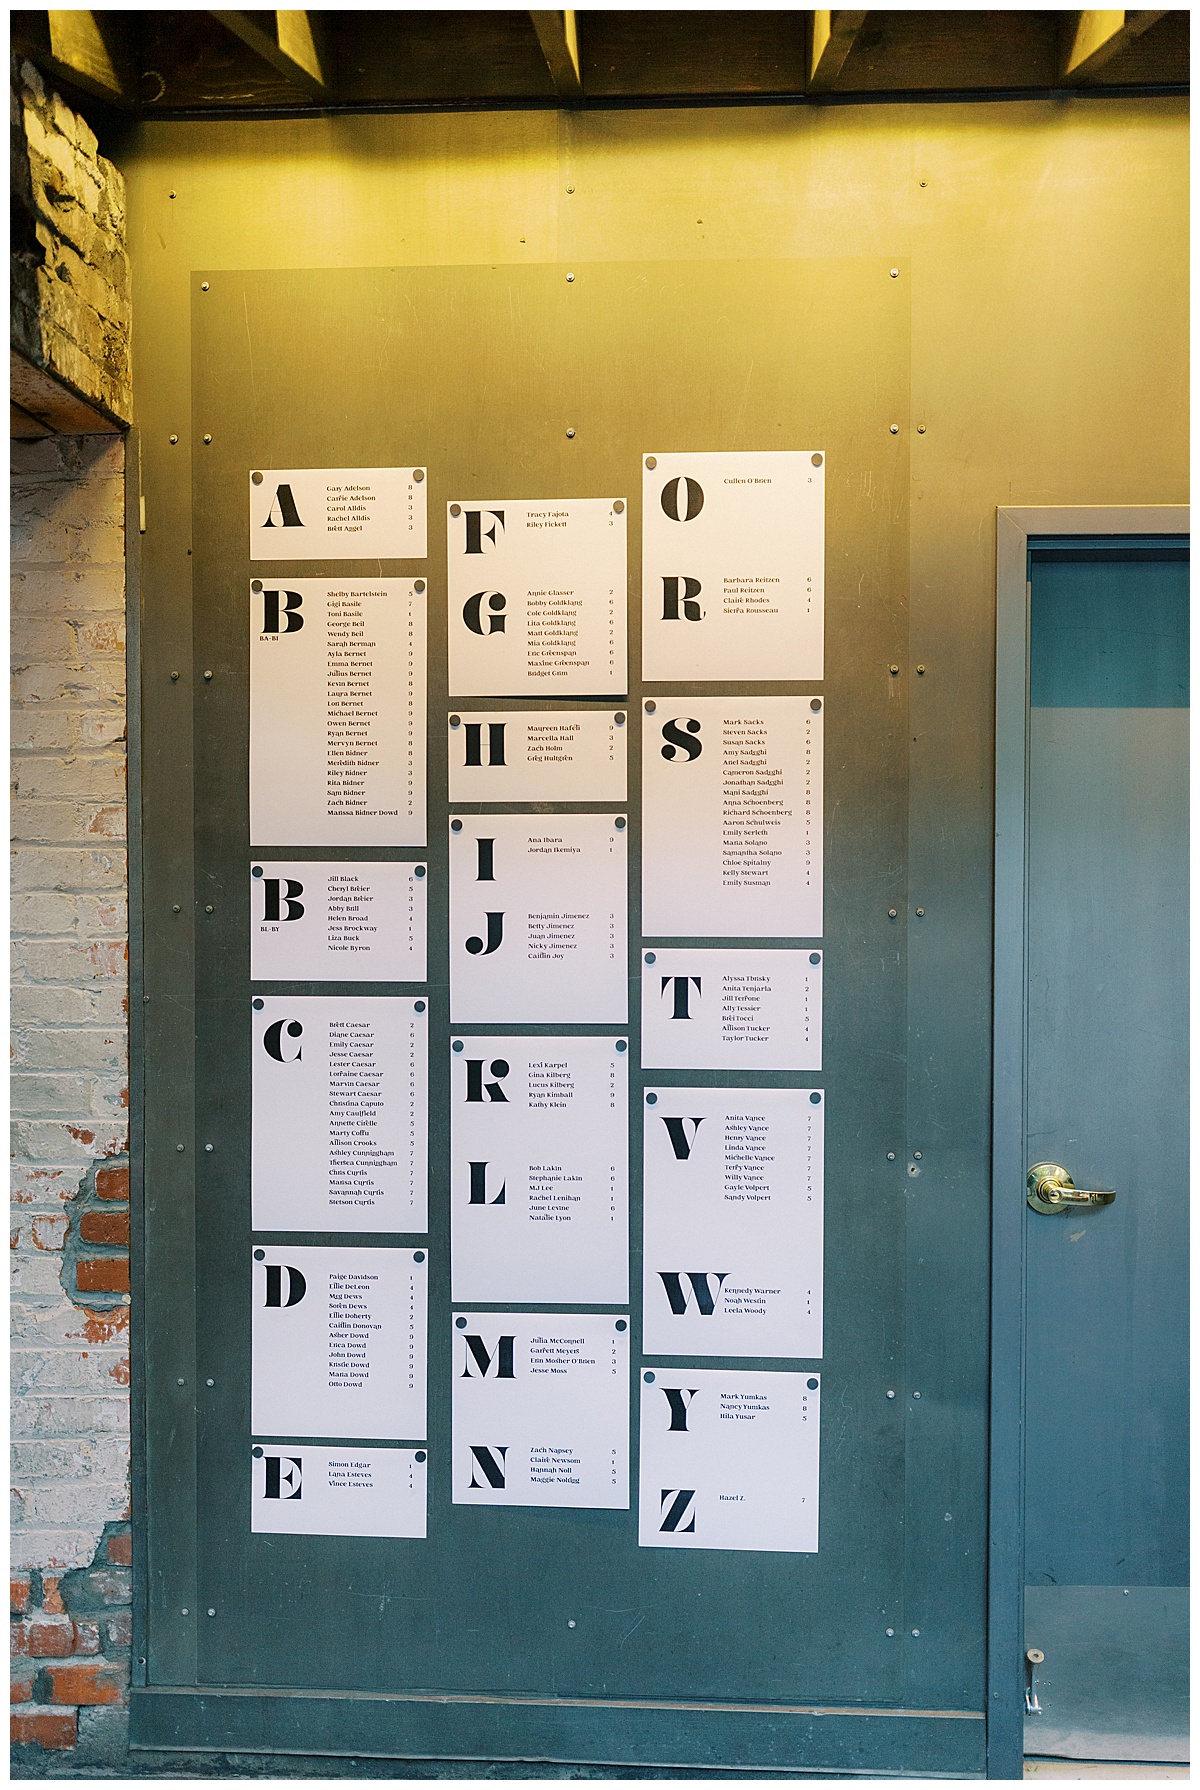 A
Gary Adelson 8
Carrie Adelson 8
Carol Alldis 3
Rachel Alldis 3
Brett Aggel 3
B
BA-BI
Shelby Bartelstein 5
Gigi Basile 7
Toni Basile 1
George Beil 8
Wendy Beil 8
Sarah Berman 4
Ayla Bernet 9
Emma Bernet 9
Julius Bernet 9
Kevin Bernet 8
Laura Bernet 9
Lori Bernet 8
Michael Bernet 9
Owen Bernet 9
Ryan Bernet 9
Mervyn Bernet 8
Ellen Bidner 8
Meredith Bidner 3
Riley Bidner 3
Rita Bidner 9
Sam Bidner 9
Zach Bidner 2
Marissa Bidner Dowd 9
B
BL-BY
Jill Black 6
Cheryl Breier 5
Jordan Breier 3
Abby Brill 3
Helen Broad 4
Jess Brockway 1
Liza Buck 5
Nicole Byron 4
C
Brett Caesar 2
Diane Caesar 6
Emily Caesar 2
Jesse Caesar 2
Lester Caesar 6
Lorraine Caesar 6
Marvin Caesar 6
Stewart Caesar 6
Christina Caputo 2
Amy Caulfield 2
Annette Cirelle 5
Marty Coffu 5
Allison Crooks 5
Ashley Cunningham 7
Theresa Cunningham 7
Chris Curtis 7
Marisa Curtis 7
Savannah Curtis 7
Stetson Curtis 7
D
Paige Davidson 1
Ellie DeLeon 4
Meg Dews 4
Soren Dews 4
Ellie Doherty 2
Caitlin Donovan 5
Asher Dowd 9
Erica Dowd 9
John Dowd 9
Kristie Dowd 9
Maria Dowd 9
Otto Dowd 9
E
Simon Edgar 1
Lana Esteves 4
Vince Esteves 4
F
Tracy Fajota 4
Riley Fickett 3
G
Annie Glasser 2
Bobby Goldklang 6
Cole Goldklang 2
Lita Goldklang 6
Matt Goldklang 2
Mia Goldklang 6
Eric Greenspan 6
Maxine Greenspan 6
Bridget Grim 1
H
Maureen Hafeli 9
Marcella Hall 3
Zach Holm 2
Greg Hultgren 5
I
Ana Ibara 9
Jordan Ikemiya 1
J
Benjamin Jimenez 3
Betty Jimenez 3
Juan Jimenez 3
Nicky Jimenez 3
Caitlin Joy 3
K
Lexi Karpel 5
Gina Kilberg 8
Lucus Kilberg 2
Ryan Kimball 9
Kathy Klein 8
L
Bob Lakin 6
Stephanie Lakin 6
MJ Lee 1
Rachel Lenihan 1
June Levine 6
Natalie Lyon 1
M
Julia McConnell 1
Garrett Meyers 2
Erin Mosher O'Brien 3
Jesse Moss 5
N
Zach Napsey 5
Claire Newsom 1
Hannah Noll 5
Maggie Nolting 5
O
Cullen O'Brien 3
R
Barbara Reitzen 6
Paul Reitzen 6
Claire Rhodes 4
Sierra Rousseau 1
S
Mark Sacks 6
Steven Sacks 2
Susan Sacks 6
Amy Sadeghi 8
Ariel Sadeghi 2
Cameron Sadeghi 2
Jonathan Sadeghi 2
Mani Sadeghi 8
Anna Schoenberg 8
Richard Schoenberg 8
Aaron Schulweis 5
Emily Serleth 1
Maria Solano 3
Samantha Solano 3
Chloe Spitalny 9
Kelly Stewart 4
Emily Susman 4
T
Alyssa Tbrisky 1
Anita Tenjarla 2
Jill Terrone 1
Ally Tessier 1
Brei Tocci 5
Allison Tucker 4
Taylor Tucker 4
V
Anita Vance 7
Ashley Vance 7
Henry Vance 7
Linda Vance 7
Michelle Vance 7
Terry Vance 7
Willy Vance 7
Gayle Volpert 5
Sandy Volpert 5
W
Kennedy Warner 4
Noah Westin 1
Leela Woody 4
Y
Mark Yumkas 8
Nancy Yumkas 8
Hila Yusar 5
Z
Hazel Z. 7